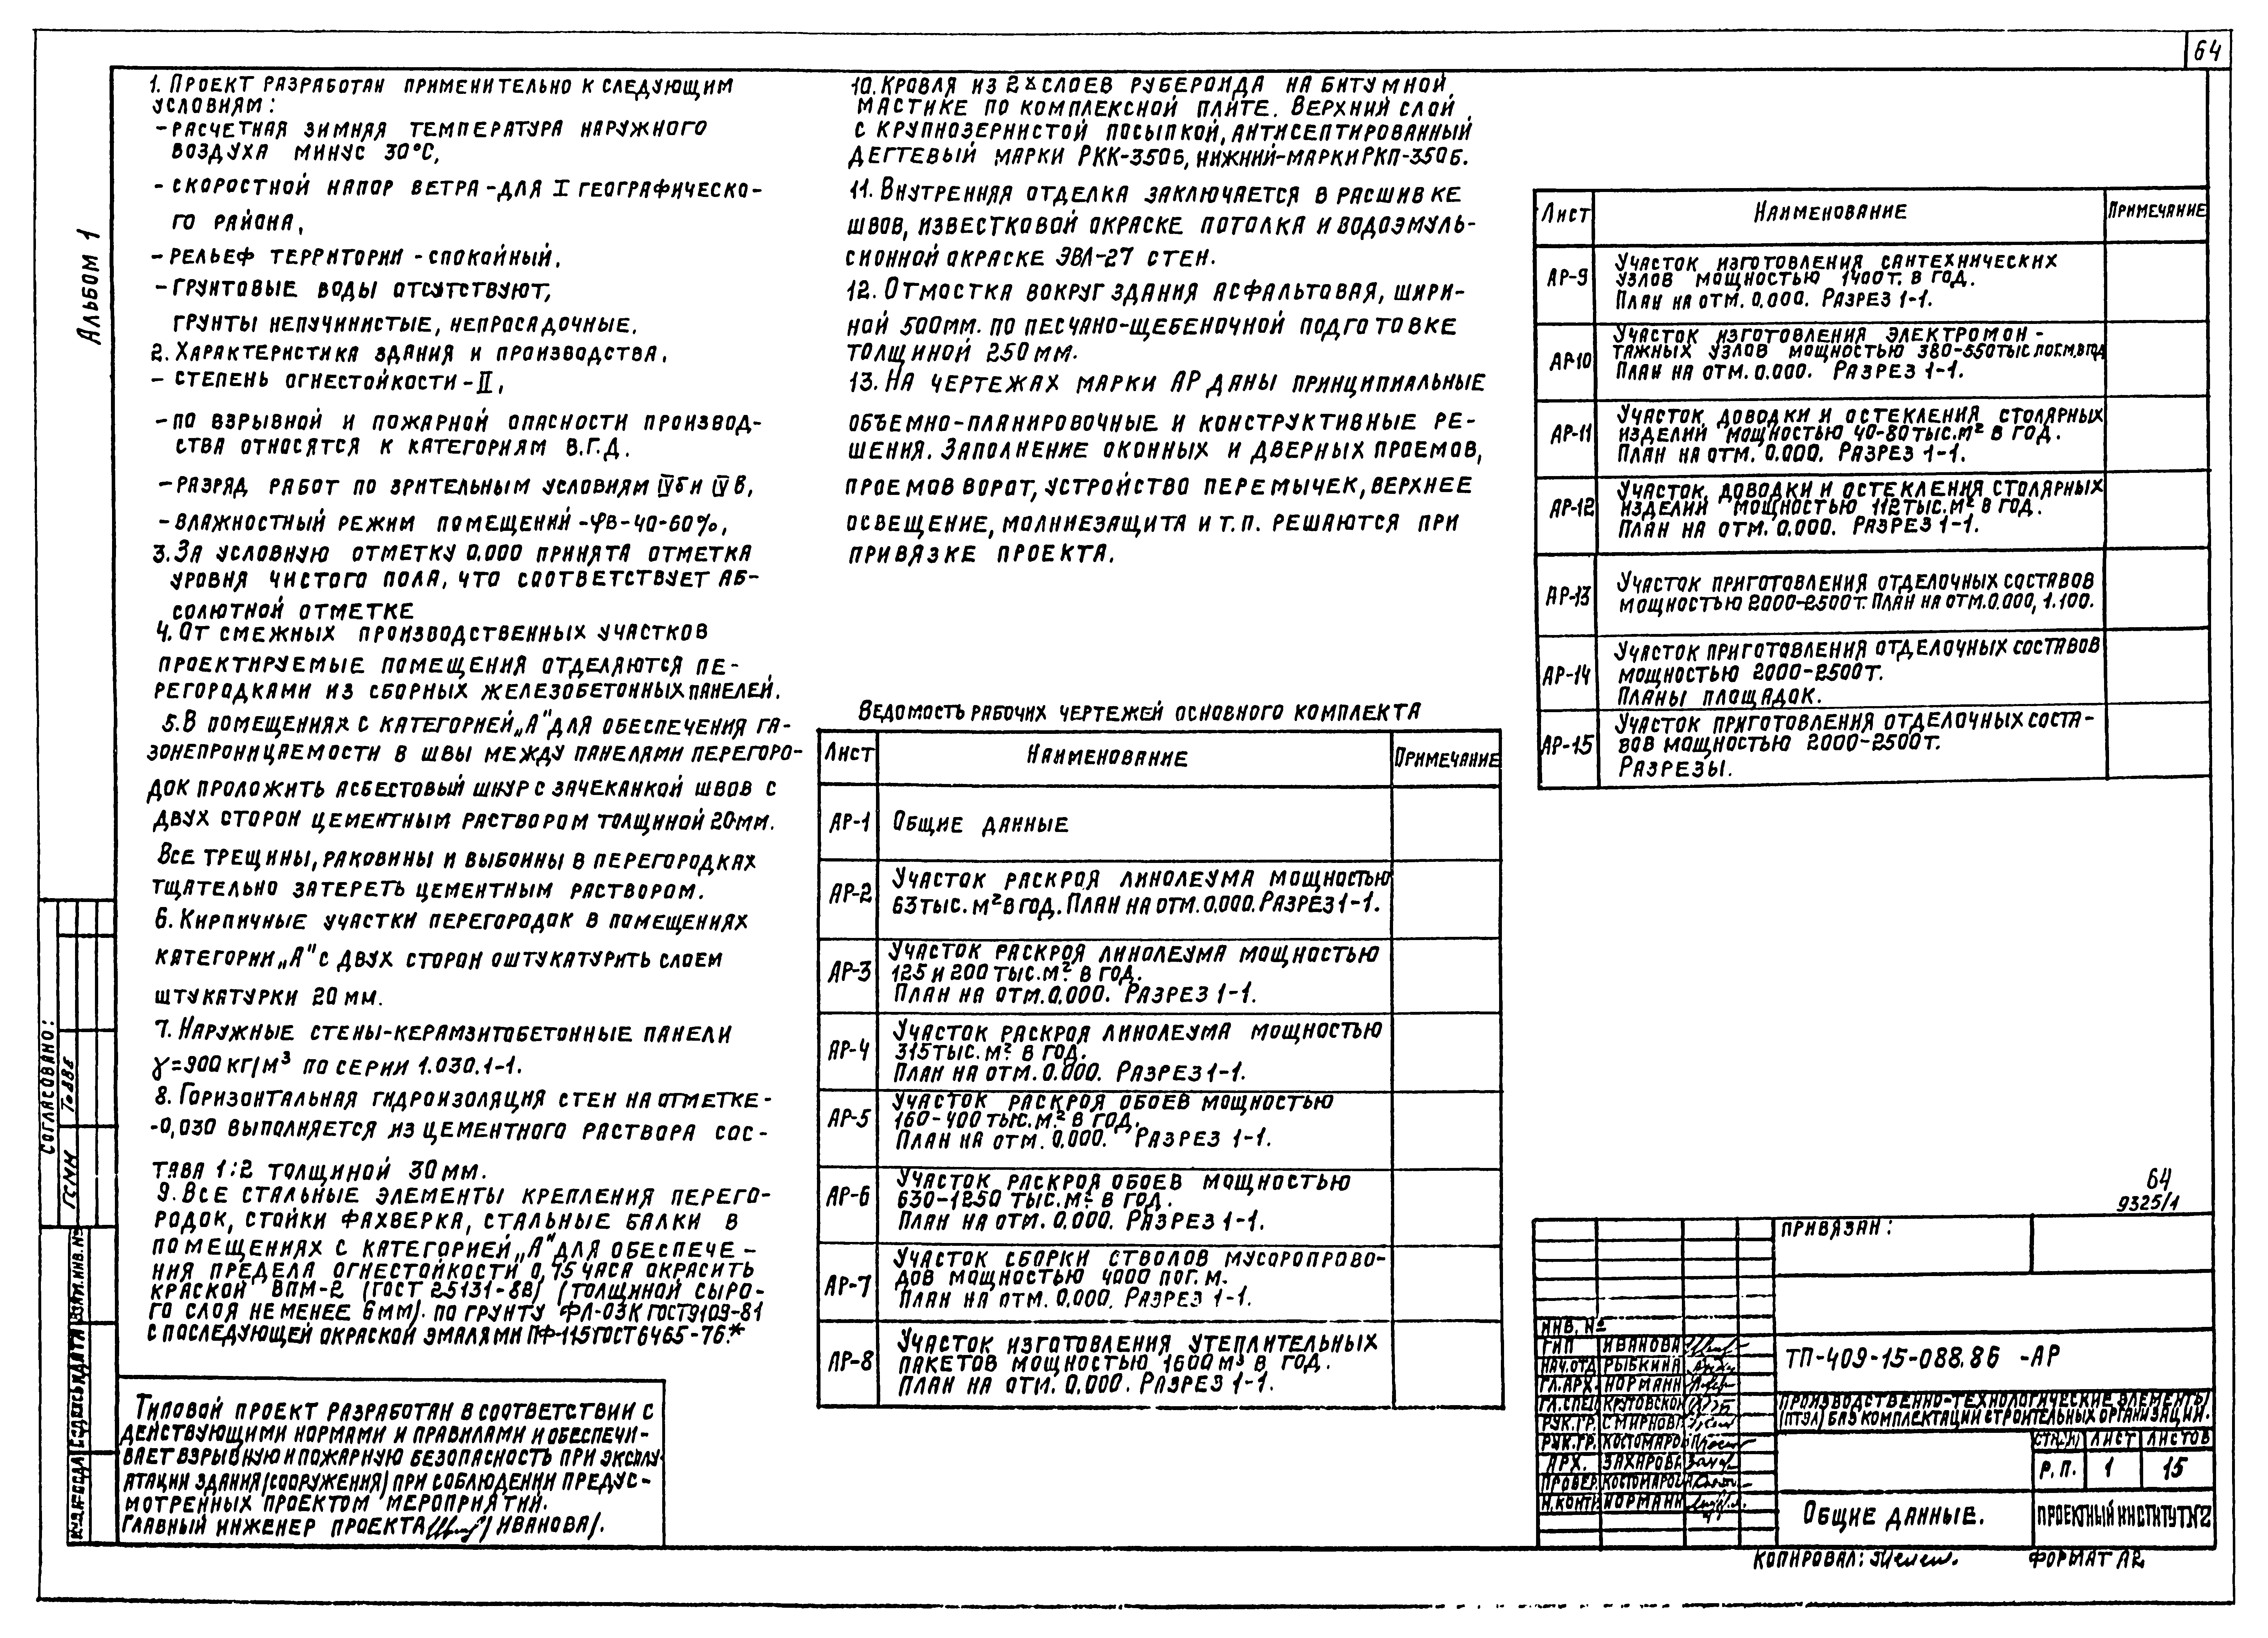 64
Альбом 1
1. Проект разработан применительно к следующим
условиям:
- расчетная зимняя температура наружного
воздуха минус 30°С,
- скоростной напор ветра - для I географическо-
го района,
- рельеф территории - спокойный,
- грунтовые воды отсутствуют,
грунты непучинистые, непросадочные.
2. Характеристика здания и производства.
- степень огнестойкости - II,
- по взрывной и пожарной опасности производ-
ства относятся к категориям В.Г.Д.
- разряд работ по зрительным условиям IVб и IVв,
- влажностный режим помещений - φв-40-60%,
3. За условную отметку 0.000 принята отметка
уровня чистого пола, что соответствует аб-
солютной отметке
4. От смежных производственных участков
проектируемые помещения отделяются пе-
регородками из сборных железобетонных панелей.
5. В помещениях с категорией „А" для обеспечения га-
зонепроницаемости в швы между панелями перегоро-
док проложить асбестовый шнур с зачеканкой швов с
двух сторон цементным раствором толщиной 20мм.
Все трещины, раковины и выбоины в перегородках
тщательно затереть цементным раствором.
6. Кирпичные участки перегородок в помещениях
категории „А" с двух сторон оштукатурить слоем
штукатурки 20 мм.
7. Наружные стены-керамзитобетонные панели
γ=900 кг/м³ по серии 1.030.1-1.
8. Горизонтальная гидроизоляция стен на отметке-
-0,030 выполняется из цементного раствора сос-
тава 1:2 толщиной 30 мм.
9. Все стальные элементы крепления перего-
родок, стойки фахверка, стальные балки в
помещениях с категорией „А" для обеспече-
ния предела огнестойкости 0,75 часа окрасить
краской ВПМ-2 (ГОСТ 25131-8В) (толщиной сыро-
го слоя не менее 6мм). по грунту ФЛ-03К ГОСТ9109-81
с последующей окраской эмалями ПФ-115 ГОСТ6465-76.*
Типовой проект разработан в соответствии с
действующими нормами и правилами и обеспечи-
вает взрывную и пожарную безопасность при эксплу-
атации здания (сооружения) при соблюдении предус-
мотренных проектом мероприятий.
Главный инженер проекта /Иванова/.
10. Кровля из 2х слоев рубероида на битумной
мастике по комплексной плите. Верхний слой
с крупнозернистой посыпкой, антисептированный
дегтевый марки РКК-350б, нижний-марки РКП-350б.
11. Внутренняя отделка заключается в расшивке
швов, известковой окраске потолка и водоэмуль-
сионной окраске ЭВА-27 стен.
12. Отмостка вокруг здания асфальтовая, шири-
ной 500мм. по песчано-щебеночной подготовке
толщиной 250 мм.
13. На чертежах марки АР даны принципиальные
объемно-планировочные и конструктивные ре-
шения. Заполнение оконных и дверных проемов,
проемов ворот, устройство перемычек, верхнее
освещение, молниезащита и т.п. решаются при
привязке проекта.
Ведомость рабочих чертежей основного комплекта
Лист Наименование Примечание
АР-1 Общие данные
АР-2 Участок раскроя линолеума мощностью
63 тыс. м² в год. План на отм. 0.000. Разрез 1-1.
АР-3 Участок раскроя линолеума мощностью
125 и 200 тыс. м² в год.
План на отм. 0.000. Разрез 1-1.
АР-4 Участок раскроя линолеума мощностью
315 тыс. м² в год.
План на отм. 0.000. Разрез 1-1.
АР-5 Участок раскроя обоев мощностью
160-400 тыс. м² в год.
План на отм. 0.000. Разрез 1-1.
АР-6 Участок раскроя обоев мощностью
630-1250 тыс. м² в год.
План на отм. 0.000. Разрез 1-1.
АР-7 Участок сборки стволов мусоропрово-
дов мощностью 4000 пог. м.
План на отм. 0.000. Разрез 1-1.
АР-8 Участок изготовления утеплительных
пакетов мощностью 1600 м³ в год.
План на отм. 0.000. Разрез 1-1.
Лист Наименование Примечание
АР-9 Участок изготовления сантехнических
узлов мощностью 1400т. в год.
План на отм. 0.000. Разрез 1-1.
АР-10 Участок изготовления электромон-
тажных узлов мощностью 380-550тыс пог.м. в год
План на отм. 0.000. Разрез 1-1.
АР-11 Участок доводки и остекления столярных
изделий мощностью 40-80 тыс. м² в год.
План на отм. 0.000. Разрез 1-1.
АР-12 Участок доводки и остекления столярных
изделий мощностью 112 тыс. м² в год.
План на отм. 0.000. Разрез 1-1.
АР-13 Участок приготовления отделочных составов
мощностью 2000-2500т. План на отм. 0.000, 1.100.
АР-14 Участок приготовления отделочных составов
мощностью 2000-2500т.
Планы площадок.
АР-15 Участок приготовления отделочных соста-
вов мощностью 2000-2500т.
Разрезы.
64
9325/1
Привязан:
Инв. №
ГИП Иванова
Нач.отд Рыбкина
Гл.арх. Норманн
Гл.спец Крутовской
Рук.гр. Смирнов
Рук.гр. Костомаров
Арх. Захарова
Провер. Костомаров
Н.контр Норманн
ТП-409-15-088.86 -АР
Производственно-технологические элементы
(ПТЭЛ) баз комплектации строительных организаций.
Стадия Лист Листов
Р.П. 1 15
Общие данные.
Проектный институт №2
Копировал:
Формат А2
Согласовано:
ГСММ
Взам.инв.№